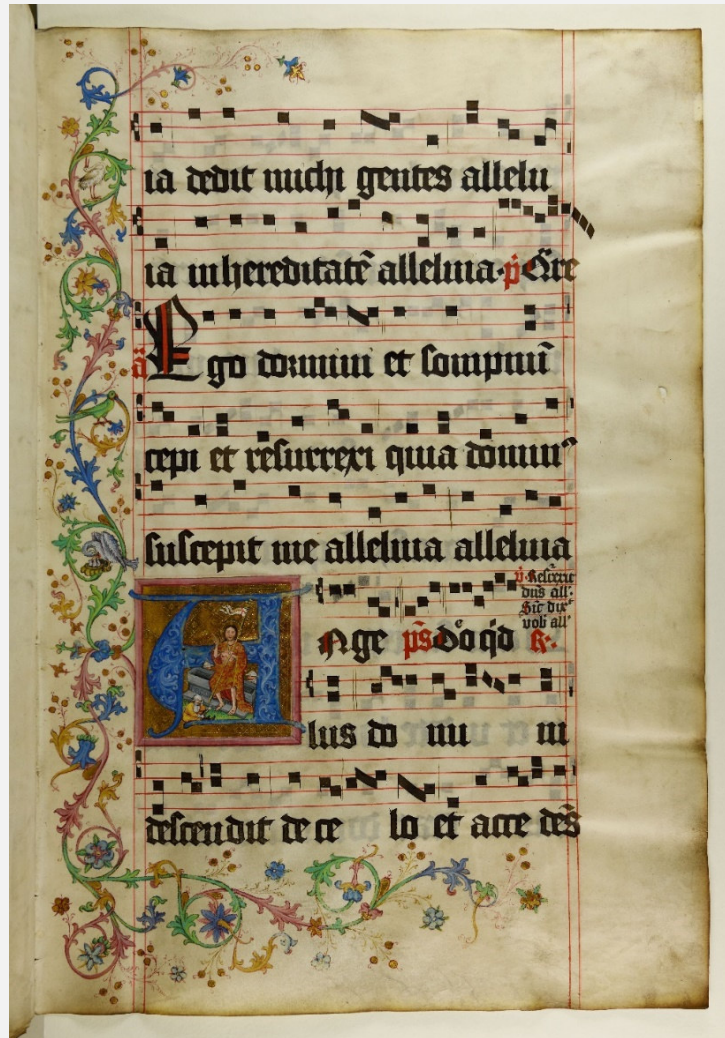 ia dedit michi gentes allelu
ia in hereditatē alleluia. p̄s
Ego dormivi et sompnū
cepi et resurrexi quia domin⁹
suscepit me alleluia alleluia
v̄ Resurrexit
dn̄s all'.
Sic̄ dix̄
vob' all'
Ange p̄s Dō q̄d R.
lus do mi ni
descendit de ce lo et acce dēs